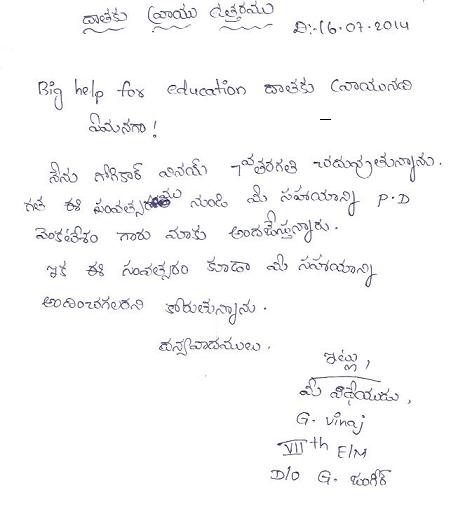 దాతకు వ్రాయు ఉత్తరము
D:-16.07.2014
Big help for education దాతకు వ్రాయునది
ఏమనగా!
నేను గోరికార్ వినయ్ 7వ తరగతి చదువుతున్నాను.
గత ఈ సంవత్సరము నుండి మీ సహాయాన్ని P.D
వెంకటేశం గారు మాకు అందచేస్తున్నారు.
ఇక ఈ సంవత్సరం కూడా మీ సహాయాన్ని
అందించగలరని కోరుతున్నాను.
ధన్యవాదములు.
ఇట్లు,
మీ విధేయుడు,
G. Vinaj
VIIth E/M
D/O G.